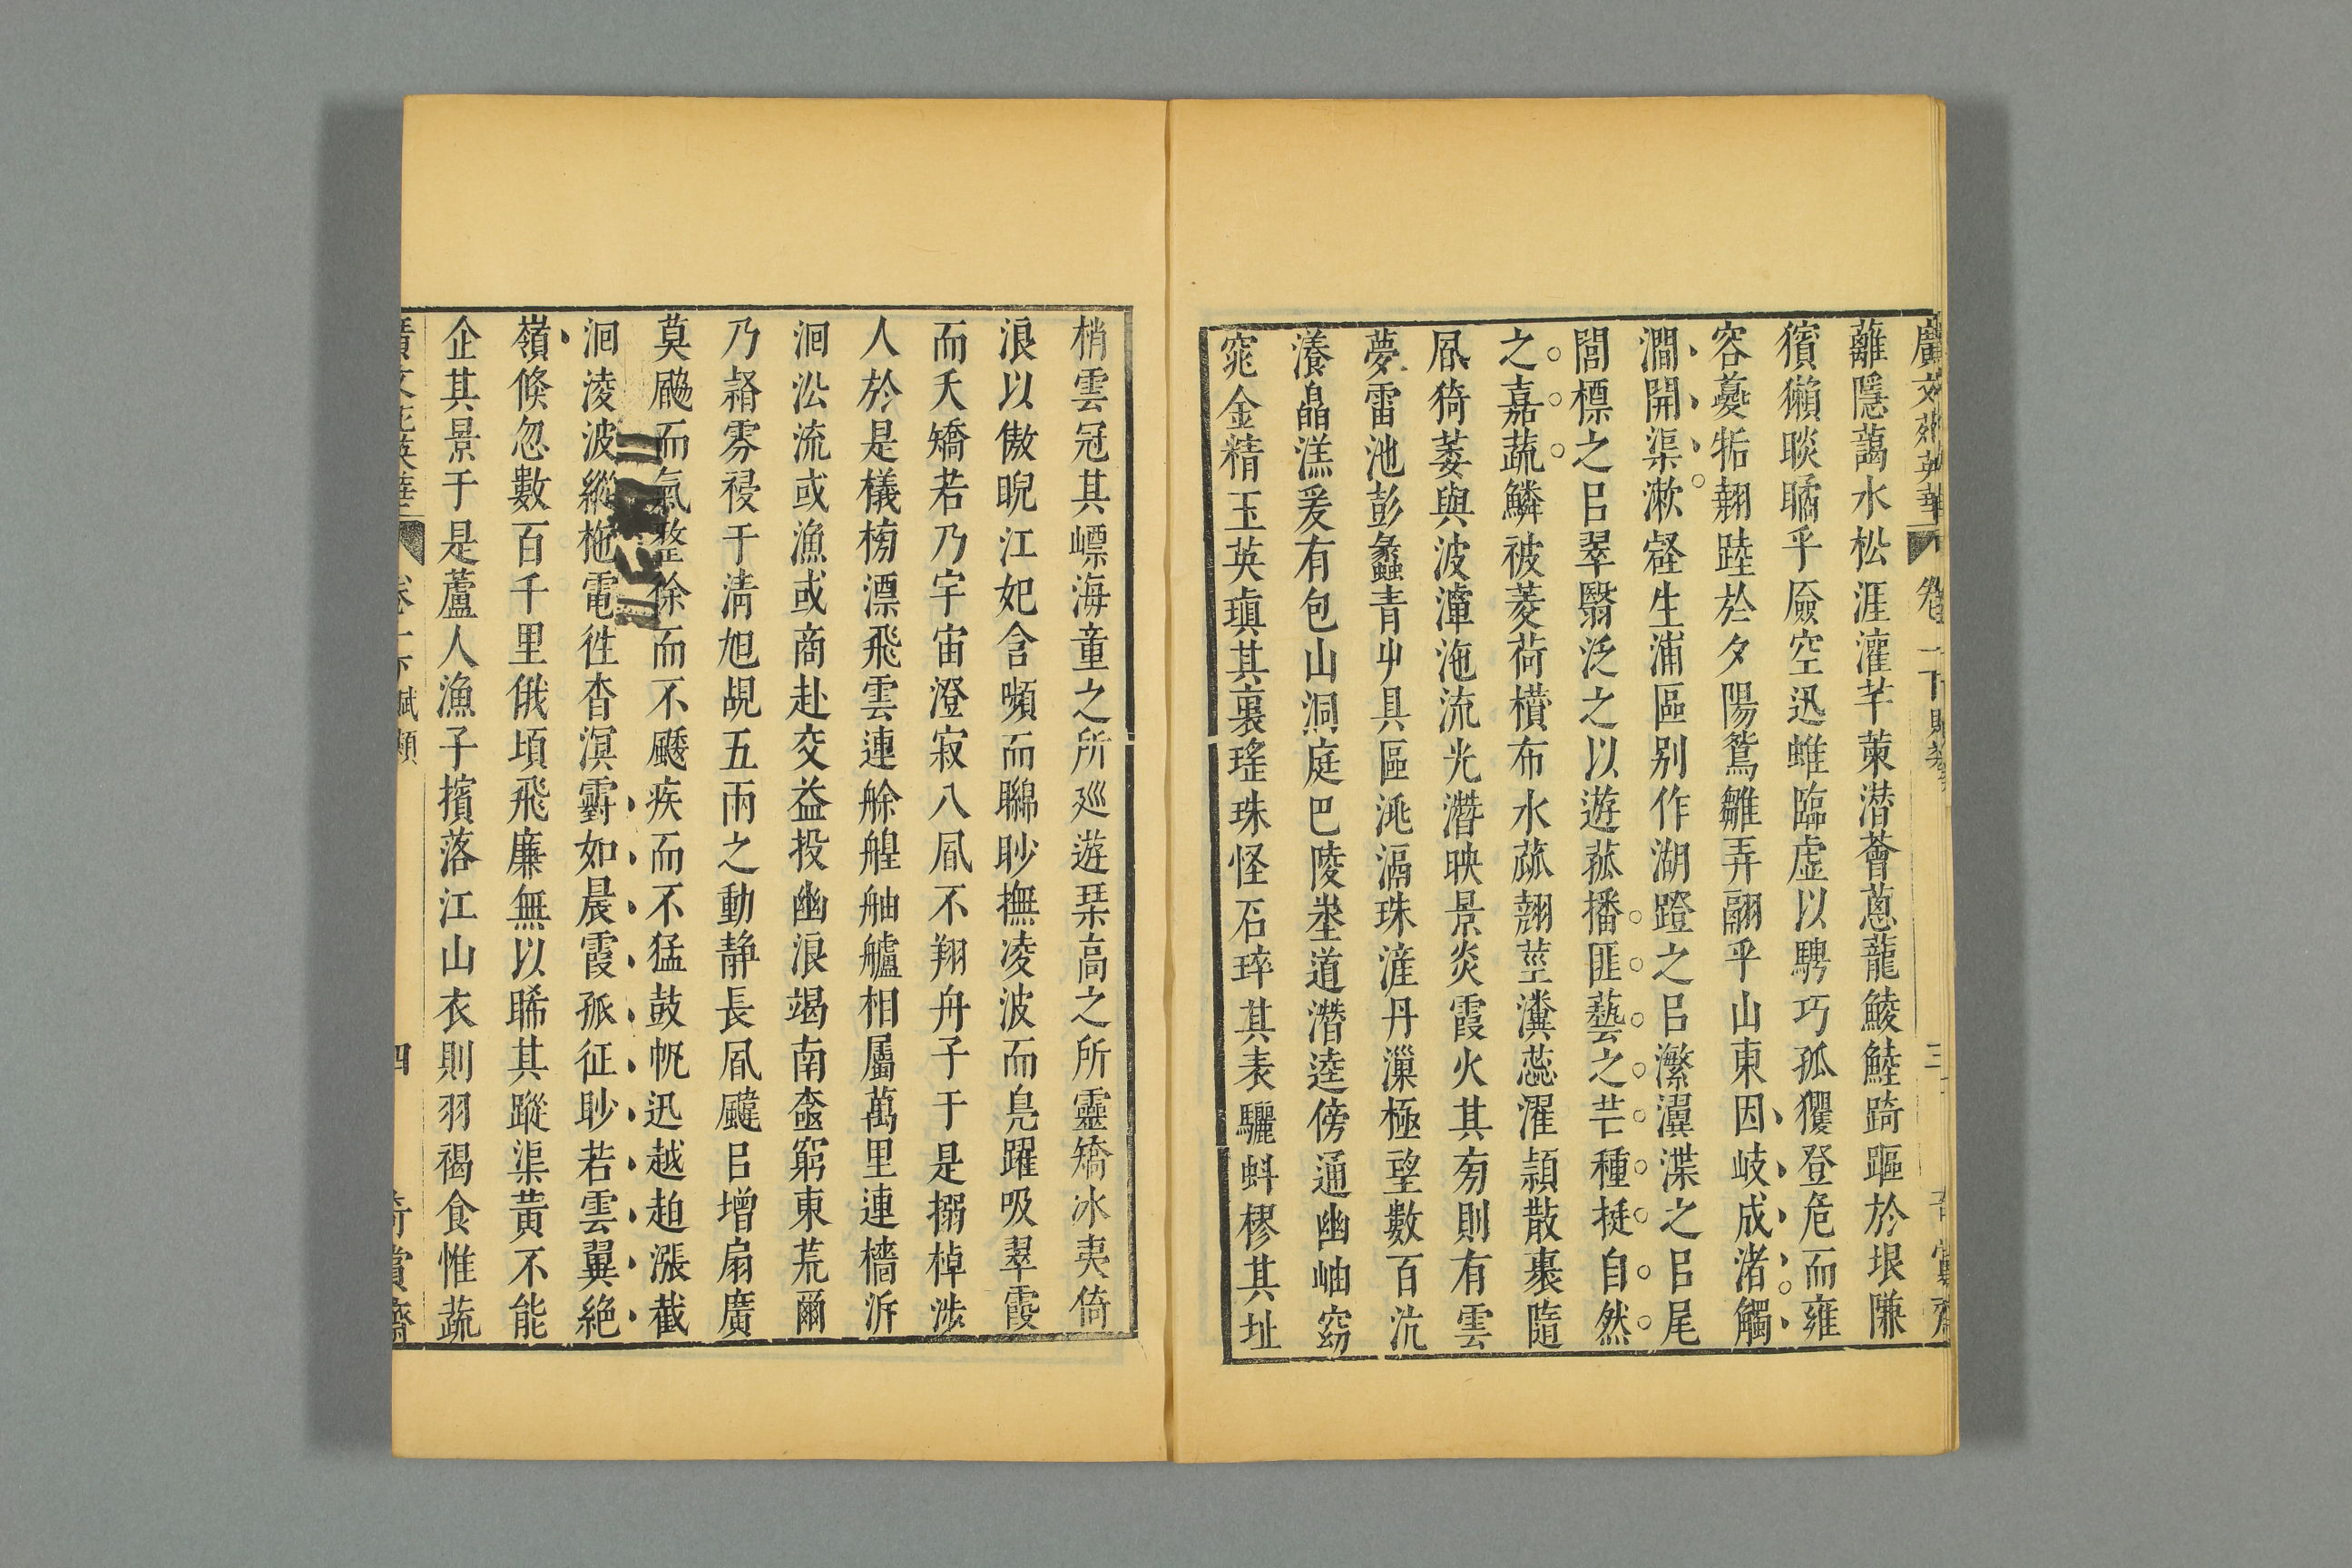 廣文苑英華 卷一下賦類
蘺隱藹水松涯灌芊萰潛薈蔥蘢鯪鯥踦䟣於垠隒
獱獺睒瞲乎厱空迅蜼臨虛以騁巧孤玃登危而雍
容夔㸸翹踛於夕陽鴛雛弄翮乎山東因岐成渚觸
澗開渠漱壑生浦區別作湖磴之㠯瀿瀷渫之㠯尾
閭標之㠯翠翳泛之以遊菰播匪藝之芒種挺自然
之嘉蔬鱗被菱荷櫕布水蓏翹莖瀵蕊濯穎散裹隨
風猗萎與波潭沲流光潛映景炎霞火其旁則有雲
夢雷池彭蠡青艸具區洮滆珠滻丹漅極望數百沆
瀁皛溔爰有包山洞庭巴陵坒道潛逵傍通幽岫窈
窕金精玉英瑱其裏瑤珠怪石琗其表驪虯樛其址
梢雲冠其嶛海童之所巡遊琹高之所靈矯冰夷倚
浪以傲睨江妃含嚬而矊眇撫凌波而鳧躍吸翠霞
而夭矯若乃宇宙澄寂八風不翔舟子于是搦棹涉
人於是檥榜漂飛雲連艅艎舳艫相屬萬里連檣泝
洄沿流或漁或商赴交益投幽浪竭南㙜窮東荒爾
乃䨟雺祲于清旭覘五兩之動靜長風颹㠯增扇廣
莫䬅而氣整徐而不䬐疾而不猛鼓帆迅越趠漲截
洄淩波縱柂電往杳溟䨴如晨霞孤征眇若雲翼絕
嶺倏忽數百千里俄頃飛廉無以睎其蹤渠黃不能
企其景于是蘆人漁子擯落江山衣則羽褐食惟蔬
廣文苑英華 卷一下賦類 四 奇賞齋